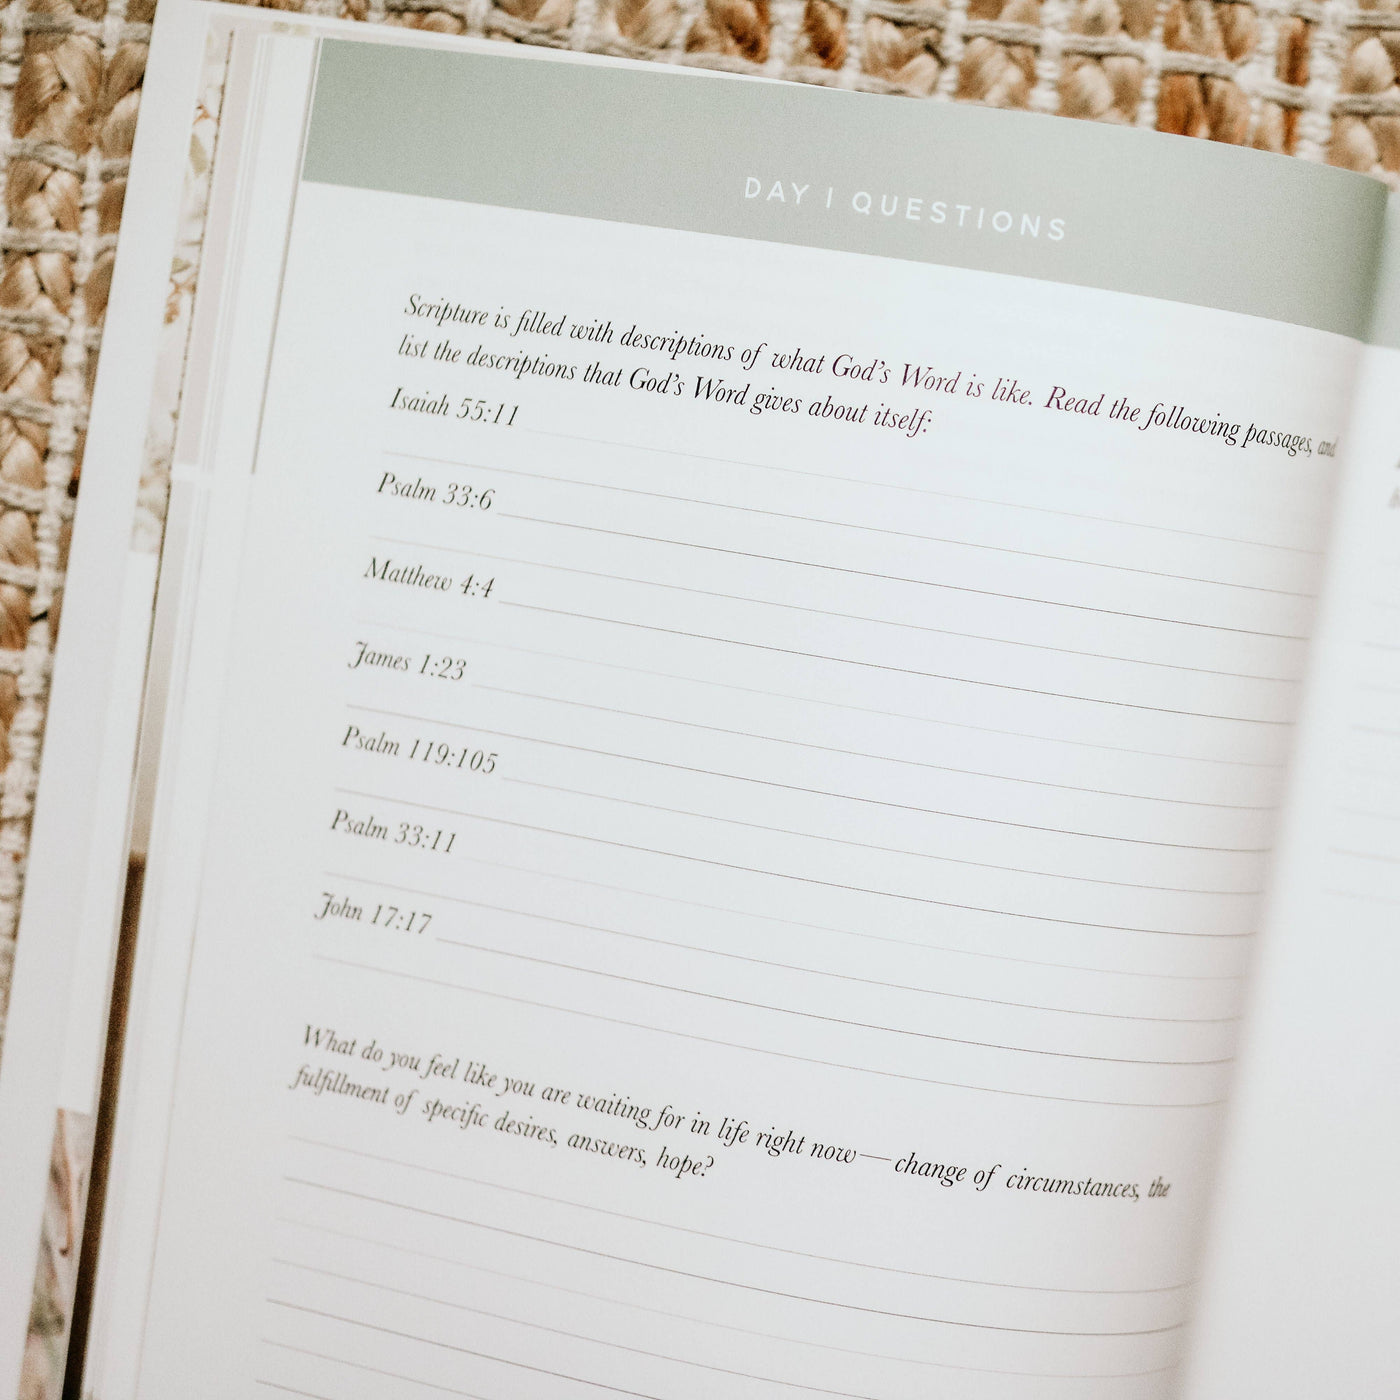 DAY 1 QUESTIONS
Scripture is filled with descriptions of what God's Word is like. Read the following passages, and
list the descriptions that God's Word gives about itself:
Isaiah 55:11
Psalm 33:6
Matthew 4:4
James 1:23
Psalm 119:105
Psalm 33:11
John 17:17
What do you feel like you are waiting for in life right now—change of circumstances, the
fulfillment of specific desires, answers, hope?